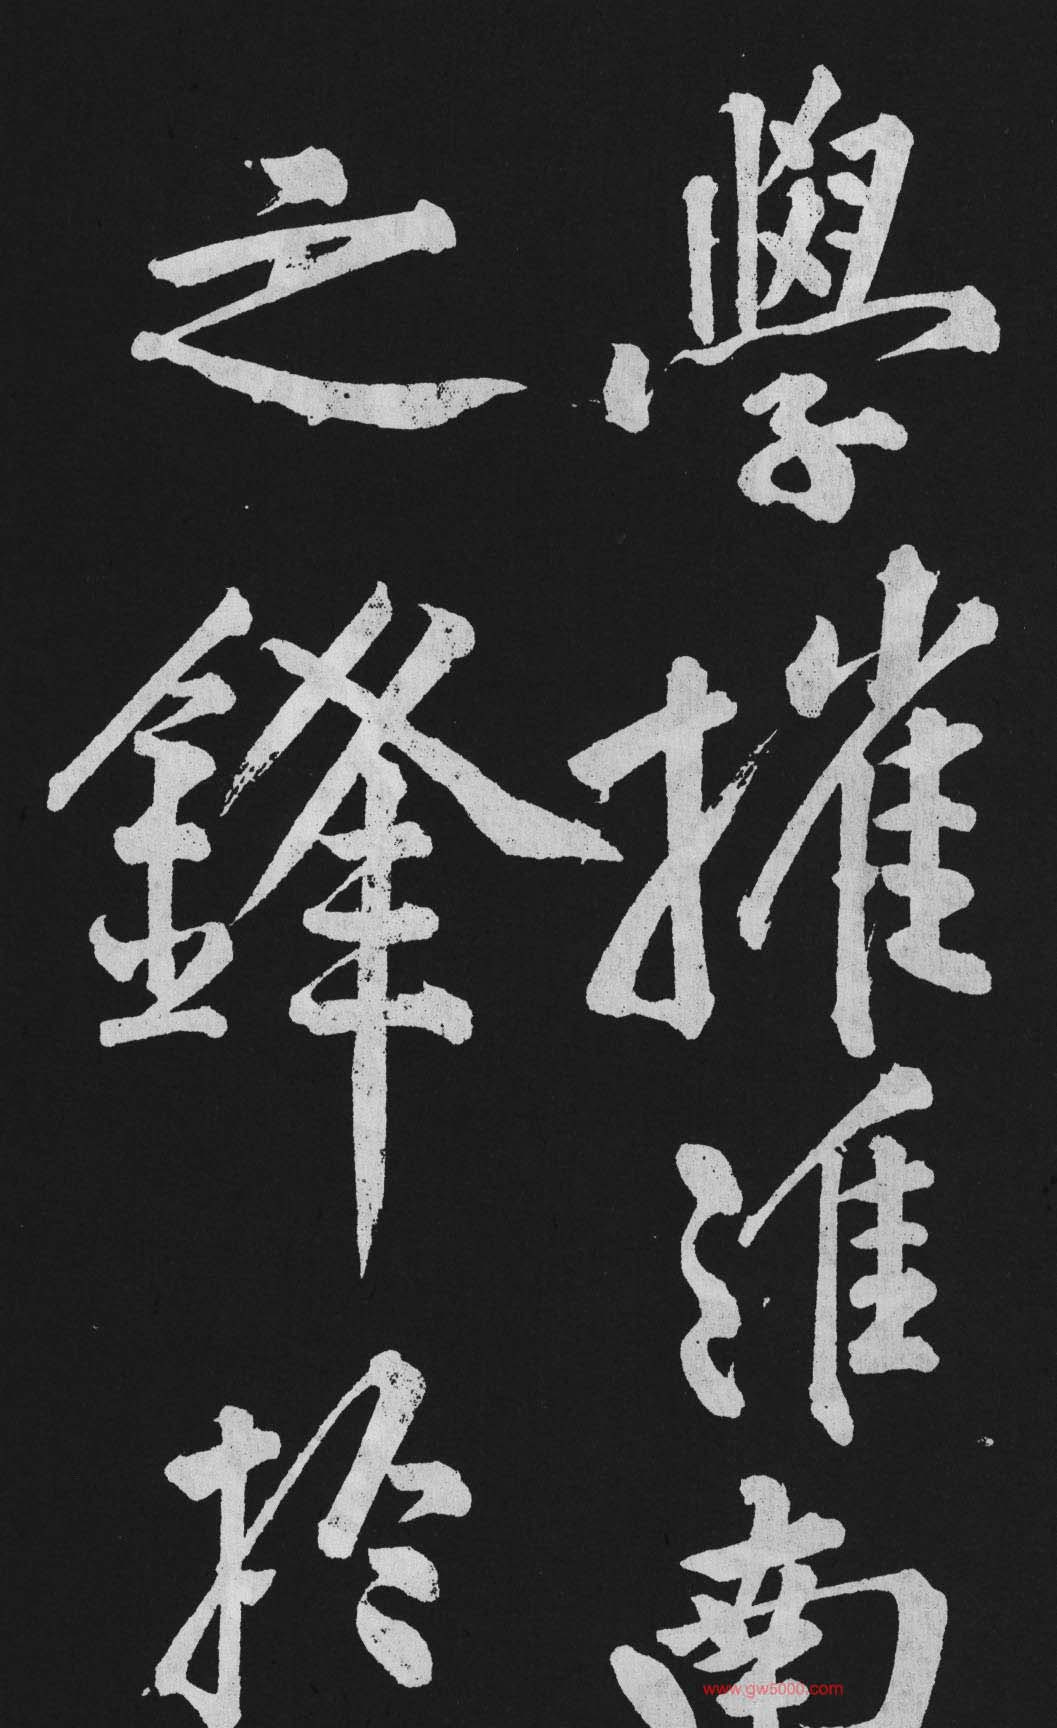 學摧淮南
之鋒於
www.gw5000.com